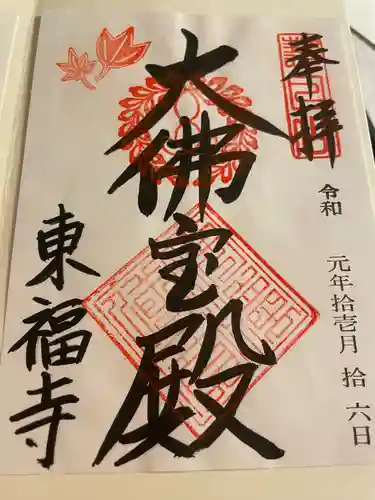 奉拝
令和 元年拾壱月 拾六日
大佛宝殿
東福寺